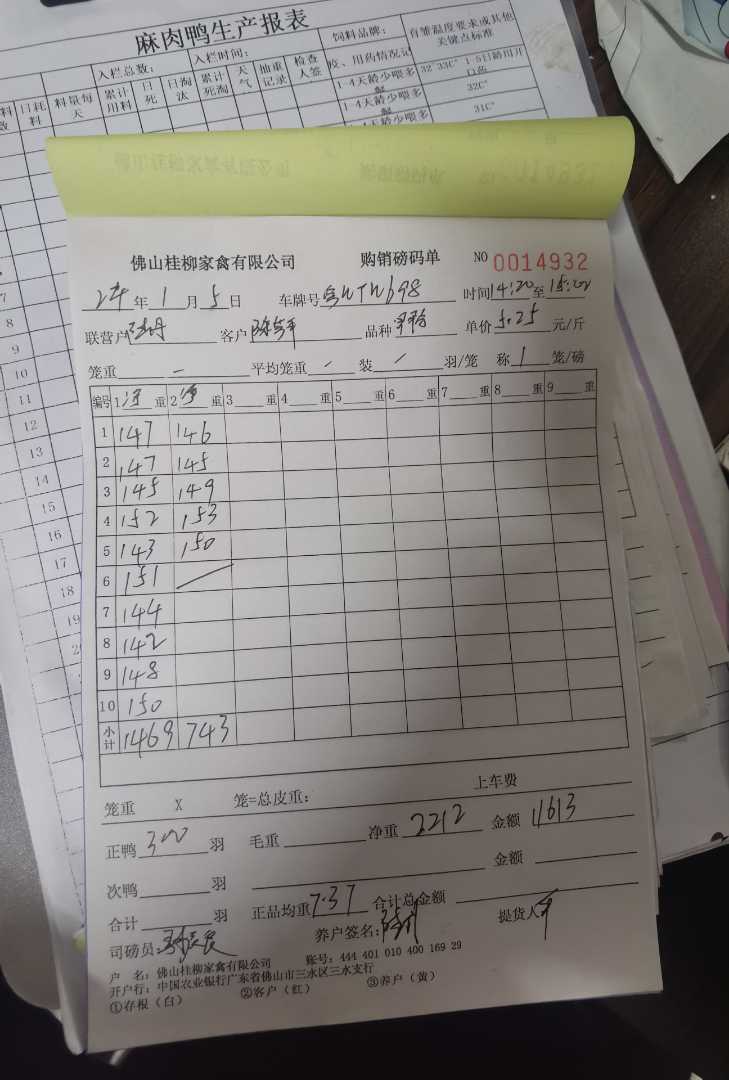 麻肉鸭生产报表
入栏总数： 入栏时间： 饲料品牌： 育雏温度要求或其他关键点标准
日耗料 料量每天 累计用料 日死 日淘汰 累计死淘 天气 抽重记录 检查人签 疫、用药情况记
1-4天龄少喂多 32 33C° 1-5日龄用开
1-4天龄少喂多 32C°
天龄少喂多 31C°
7
8
9
10
11
12
13
14
15
16
17
18
19
佛山桂柳家禽有限公司 购销磅码单 NO 0014932
24 年 1 月 5 日 车牌号 698 时间 14:20 至 15:02
联营户 客户 品种 单价 5.25 元/斤
笼重 - 平均笼重 / 装 / 羽/笼 称 1 笼/磅
编号 1 净 重 2 净 重 3 重 4 重 5 重 6 重 7 重 8 重 9 重
1 147 146
2 147 145
3 145 149
4 152 153
5 143 150
6 151 /
7 144
8 142
9 148
10 150
小计 1469 743
笼重 X 笼=总皮重： 上车费
正鸭 300 羽 毛重 净重 2212 金额 11613
次鸭 羽 金额
合计 羽 正品均重 7.37 合计总金额
司磅员： 养户签名： 提货人
户 名：佛山桂柳家禽有限公司 账号：444 401 010 400 169 29
开户行：中国农业银行广东省佛山市三水区三水支行
①存根（白） ②客户（红） ③养户（黄）